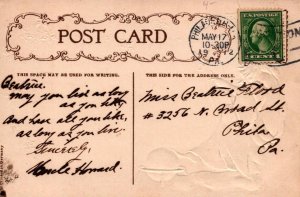 POST CARD
PHILADELPHIA
MAY 17
10-30P
PA.
U.S. POSTAGE
1 CENT 1
THIS SPACE MAY BE USED FOR WRITING.
THIS SIDE FOR THE ADDRESS.
Beatrice.
may you live as long
as you like,
And have all you like,
as long as you live.
Sincerely,
Uncle Howard.
Miss Beatrice
# 3256 N. Broad St.
Phila
Pa.